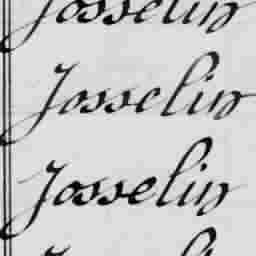 Josselin
Josselin
Josselin